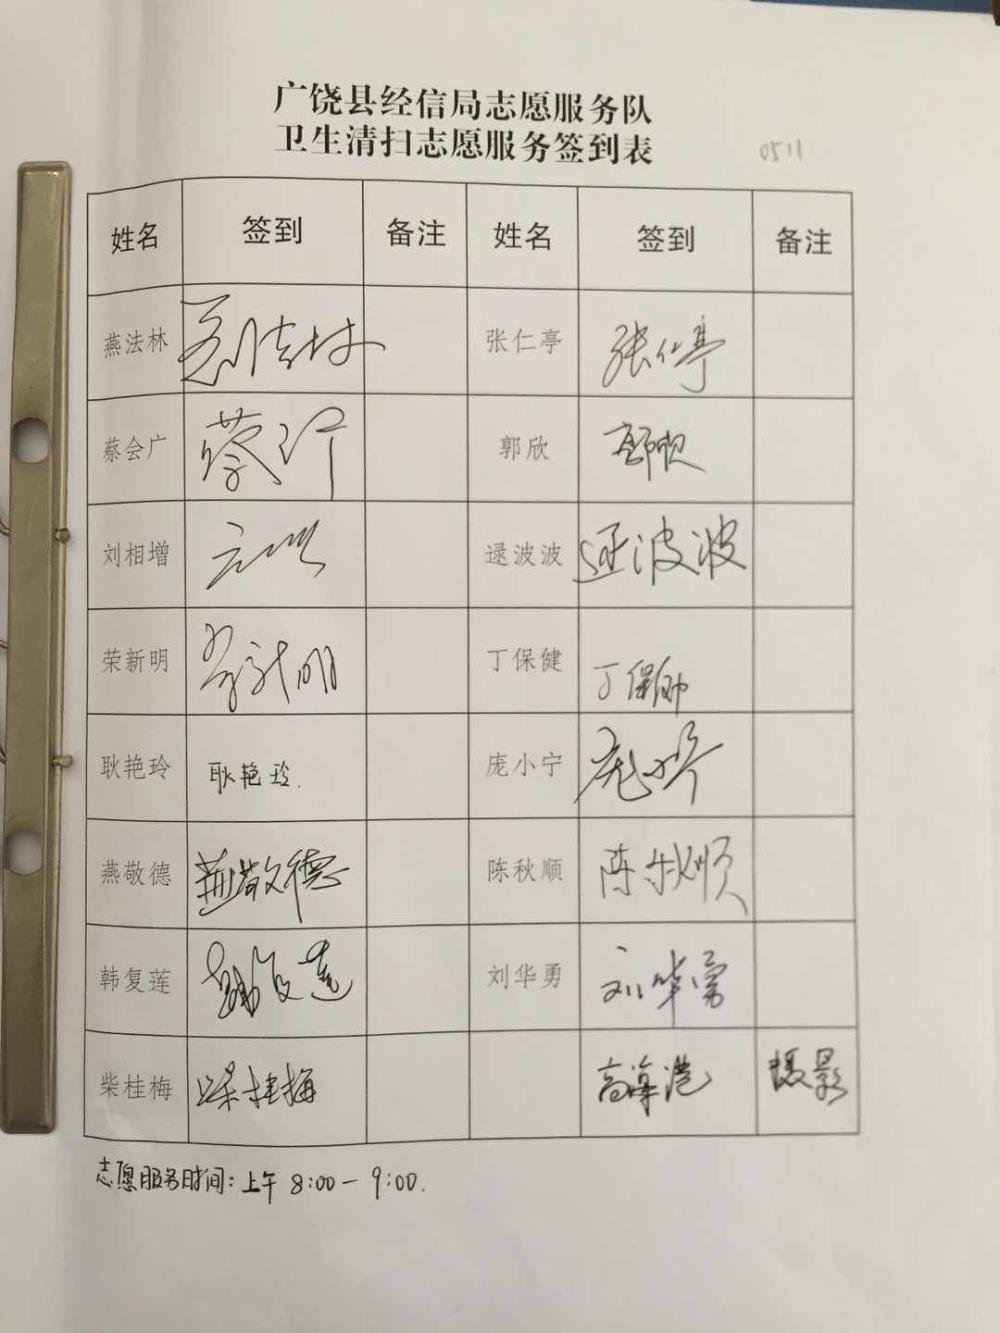 广饶县经信局志愿服务队
卫生清扫志愿服务签到表
0511
姓名 签到 备注 姓名 签到 备注
燕法林 燕法林 张仁亭 张仁亭
蔡会广 蔡 郭欣 郭欣
刘相增 逯波波 逯波波
荣新明 荣新明 丁保健 丁保健
耿艳玲 耿艳玲. 庞小宁 庞小宁
燕敬德 燕敬德 陈秋顺 陈秋顺
韩复莲 韩复莲 刘华勇 刘华勇
柴桂梅 柴桂梅 摄影
志愿服务时间:上午 8:00-9:00.